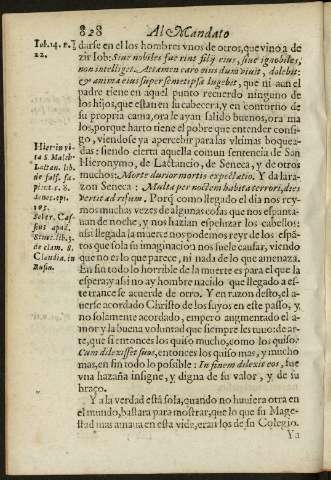 828
Al Mandato
Iob.14.n.
22.
darse en el los hombres vnos de otros, que vino a de
zir Iob: Siue nobiles fuerins filij eius, siue ignobiles,
non intelliget. Attamen caro eius dum viuit, dolebit:
& anima eius super semetipsa lugebit, que ni aun el
padre tiene en aquel punto recuerdo ninguno de
los hijos, que estan en su cabecera, y en contorno de
su propria cama, ora le ayan salido buenos, ora ma
los, porque harto tiene el pobre que entender consi
go, viendose ya apercebir para las vltimas boquea-
das: siendo cierta aquella comun sentencia de San
Hieronymo, de Lactancio, de Seneca, y de otros
muchos: Morte durior mortis expectatio. Y da la ra-
zon Seneca: Multa per noctem habita terrori, dies
vertit ad risum. Porq̃ como llegado el dia nos rey-
mos muchas vezes de algunas cosas que nos espanta-
uan de noche, y nos hazian espeluzar los cabellos:
assi llegada la muerte nos podemos reyr de los espã-
tos que sola su imaginacion nos suele causar, viendo
que no es lo que parece, ni nada de lo que amenaza.
En fin todo lo horrible de la muerte es para el que la
espera, y assi no ay hombre nacido que llegado a es-
te trance se acuerde de otro. Y en razon desto, el a-
uerse acordado Christo de los suyos en este passo, y
no solamente acordado, empero augmentado el a-
mor y la buena voluntad que siempre les tuuo: de ar-
te, que si entonces los quiso mucho, como los quiso:
Cum dilexisset suos, entonces los quiso mas, y mucho
mas, en fin todo lo possible: In finem dilexit eos, fue
vna hazaña insigne, y digna de su valor, y de su
braço.
Y a la verdad està sola, quando no huuiera otra en
el mundo, bastara para mostrar, que lo que su Mage-
stad mas amaua en esta vida, eran los de su Colegio.
Ya
Hier. in vi
ta S. Malch
Lactan. lib.
de fals. sa-
pient. c. 8.
Senec. epi.
105.